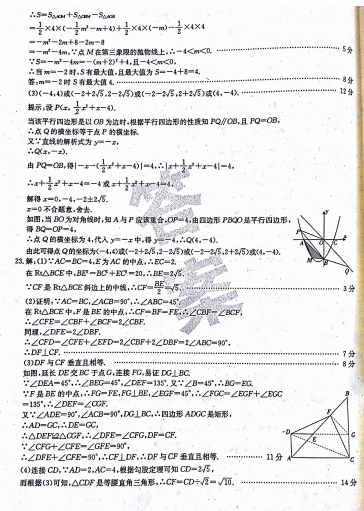 ∴S=S△AOM+S△OBM−S△AOB
=½×4×(−½m²−m+4)+½×4×(−m)−½×4×4
=−m²−2m+8−2m−8
=−m²−4m,∵点M在第三象限的抛物线上,∴−4<m<0. 5分
∵S=−m²−4m=−(m+2)²+4,且−4<m<0,
∴当m=−2时,S有最大值,且最大值为S=−4+8=4.
答:m=−2时S有最大值4. 8分
(3)(−4,4)或(−2+2√5,2−2√5)或(−2−2√5,2+2√5)或(4,−4). 12分
提示:设P(x,½x²+x−4).
当该平行四边形是以OB为边时,根据平行四边形的性质知PQ∥OB,且PQ=OB,
∴点Q的横坐标等于点P的横坐标.
又∵直线的解析式为y=−x,
∴Q(x,−x).
由PQ=OB,得|−x−(½x²+x−4)|=4,∴|x+½x²+x−4|=4,
∴x+½x²+x−4=−4或x+½x²+x−4=4,
解得x=0,−4,−2±2√5.
x=0不合题意,舍去.
如图,当BO为对角线时,知A与P应该重合,OP=4,由四边形PBQO是平行四边形,
得BQ=OP=4,
∴点Q的横坐标为4,代入y=−x中,得y=−4,∴Q(4,−4).
由此可得点Q的坐标为(−4,4)或(−2+2√5,2−2√5)或(−2−2√5,2+2√5)或(4,−4).
23.解:(1)∵AC=BC=4,E为AC的中点,∴EC=2.
在Rt△BCE中,BE²=BC²+EC²=20,∴BE=2√5,
∵CF是Rt△BCE斜边上的中线,∴CF=BE/2=√5. 3分
(2)证明:∵AC=BC,∠ACB=90°,∴∠ABC=45°,
在Rt△BCE中,F是BE的中点,∴CF=BF=FE,∴∠CBF=∠BCF,
∴∠CFE=∠CBF+∠BCF=2∠CBF.
同理,∠DFE=2∠DBF,
∴∠CFD=∠CFE+∠EFD=2∠CBF+2∠DBF=2∠ABC=90°,
∴DF⊥CF. 7分
(3)DF与CF垂直且相等. 8分
如图,延长DE交BC于点G,连接FG,易证DG⊥BC.
∵∠DEA=45°,∴∠BEG=45°,∠DEF=135°.又∵∠B=45°,∴BG=EG.
∵F是BE的中点,∴FG=FE,FG⊥BE,∠EGF=45°,∴∠FGC=∠EGF+∠EGC
=135°,∴∠DEF=∠CGF.
又∵∠ADE=90°,∠ACB=90°,DG⊥BC,∴四边形ADGC是矩形,
∴AD=GC,∴DE=GC,
∴△DEF≌△CGF,∴∠DFE=∠CFG,DF=CF.
∵∠CFG+∠CFE=∠GFE=90°,
∴∠DFE+∠CFE=90°,∴CF⊥DF,∴DF与CF垂直且相等. 11分
(4)连接CD,∵AD=2,AC=4,根据勾股定理可知CD=2√5,
而根据(3)可知,△CDF是等腰直角三角形,∴CF=CD÷√2=√10. 14分